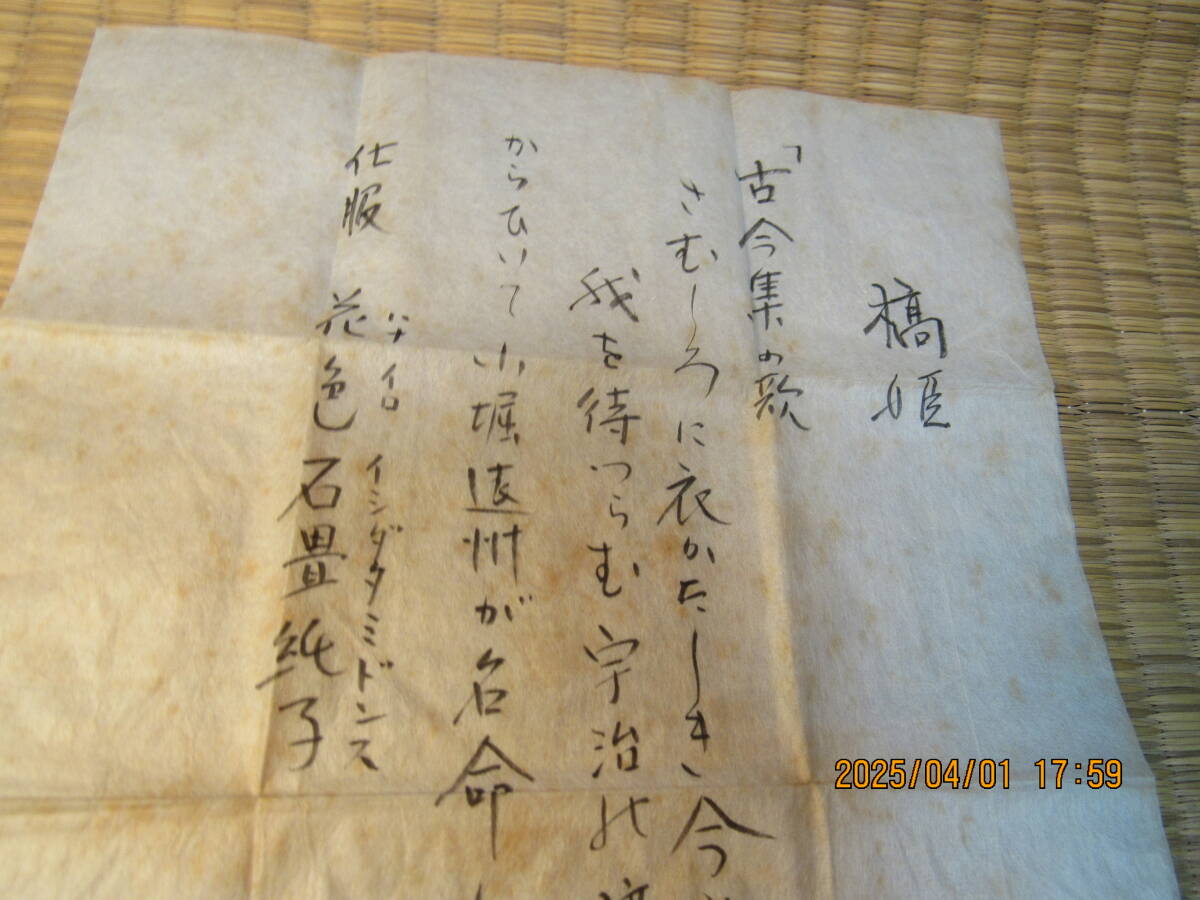 橋姫
「古今集の歌
さむしろに衣かたしき今
我を待つらむ宇治の
からひいて小堀遠州が名命
ハナイロ イシダタミドンス
仕服 花色石畳純子
2025/04/01 17:59